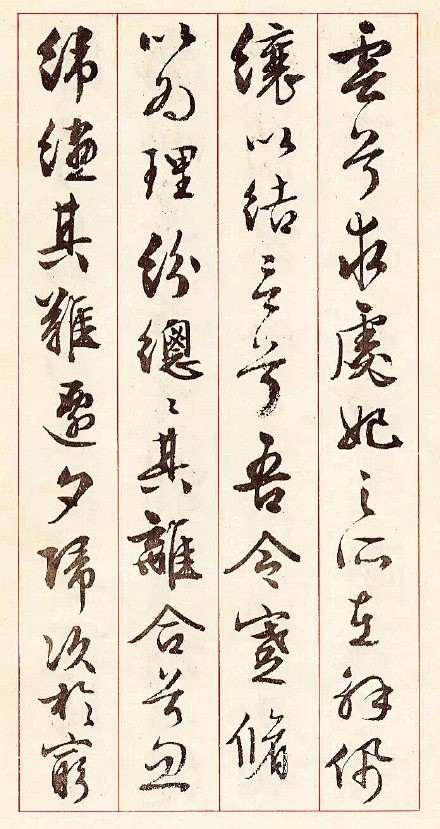 雲兮求虙妃之所在解佩
纕以结言兮吾令蹇脩
以為理紛總〻其離合兮忽
緯繣其難遷夕歸次於窮